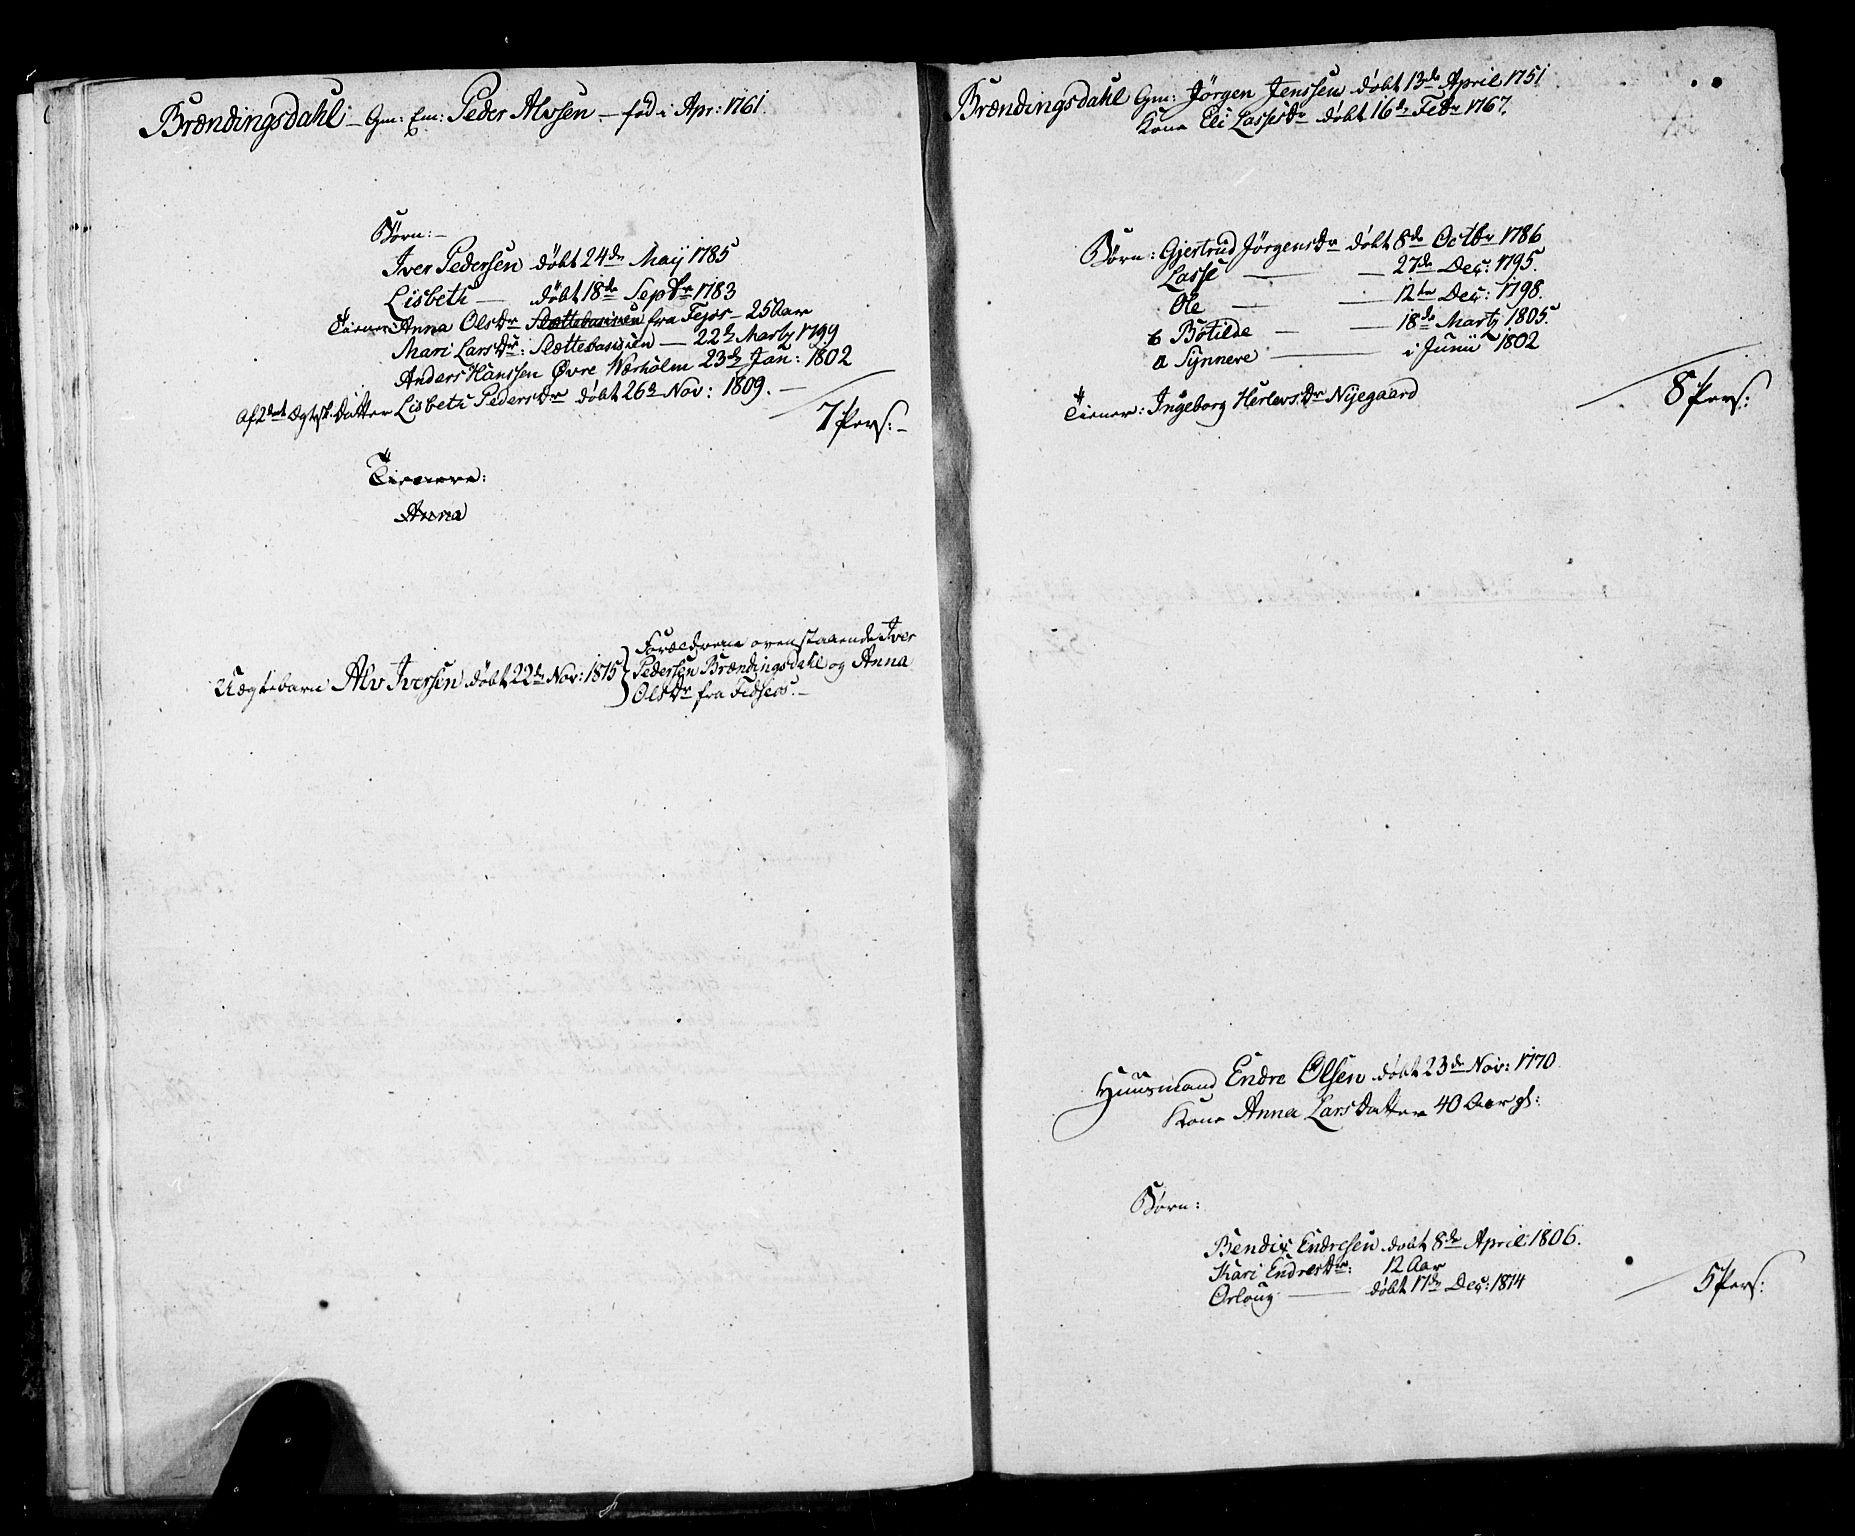 Brændingsdahl – Gm: Em: Peder Alvsen – fød i Apr: 1761.
Børn: –
Iver Pedersen døbt 24de Maij 1785
Lisbeth — døbt 18de Septbr 1783
Tiener Anna Olsdr Slættebasisen fra Fejos – 25 Aar
Mari Larsdr: Slættebassen — 22de Marty 1799
Anders Hanssen Øvre Nærholm 23de Jan: 1802
Af 2det Ægtsk: Datter Lisbeth Pedersdr døbt 26de Nov: 1809. —
7 Pers: –
Tienere:
Anna
Uægtebarn Alv Iversen døbt 22de Nov: 1815 } Forældrene ovenstaaende Iver
Pedersen Brændingsdahl og Anna
Olsdr fra Fedseos. –
Brændingsdahl Gm: Jörgen Jenssen døbt 13de April 1751
Kone Eli Lassesdr døbt 16de Febr 1767.
Børn: Gjertrud Jörgensdr døbt 8de Octbr 1786
Lasse — — 27de Dec: 1795.
Ole — — 12te Dec: 1798.
b Bötilde — — 18de Marty 1805.
a Synneve — i Junii 1802
Tiener: Ingeborg Herlevsdr Nijegaard
8 Pers:
Huusmand Endre Olsen døbt 23de Nov: 1770
Kone Anna Larsdatter 40 Aar gl:
Børn:
Bendix Endresen døbt 8de April 1806.
Kari Endresdr: 12 Aar
Orloug — døbt 17de Dec: 1814
5 Pers: